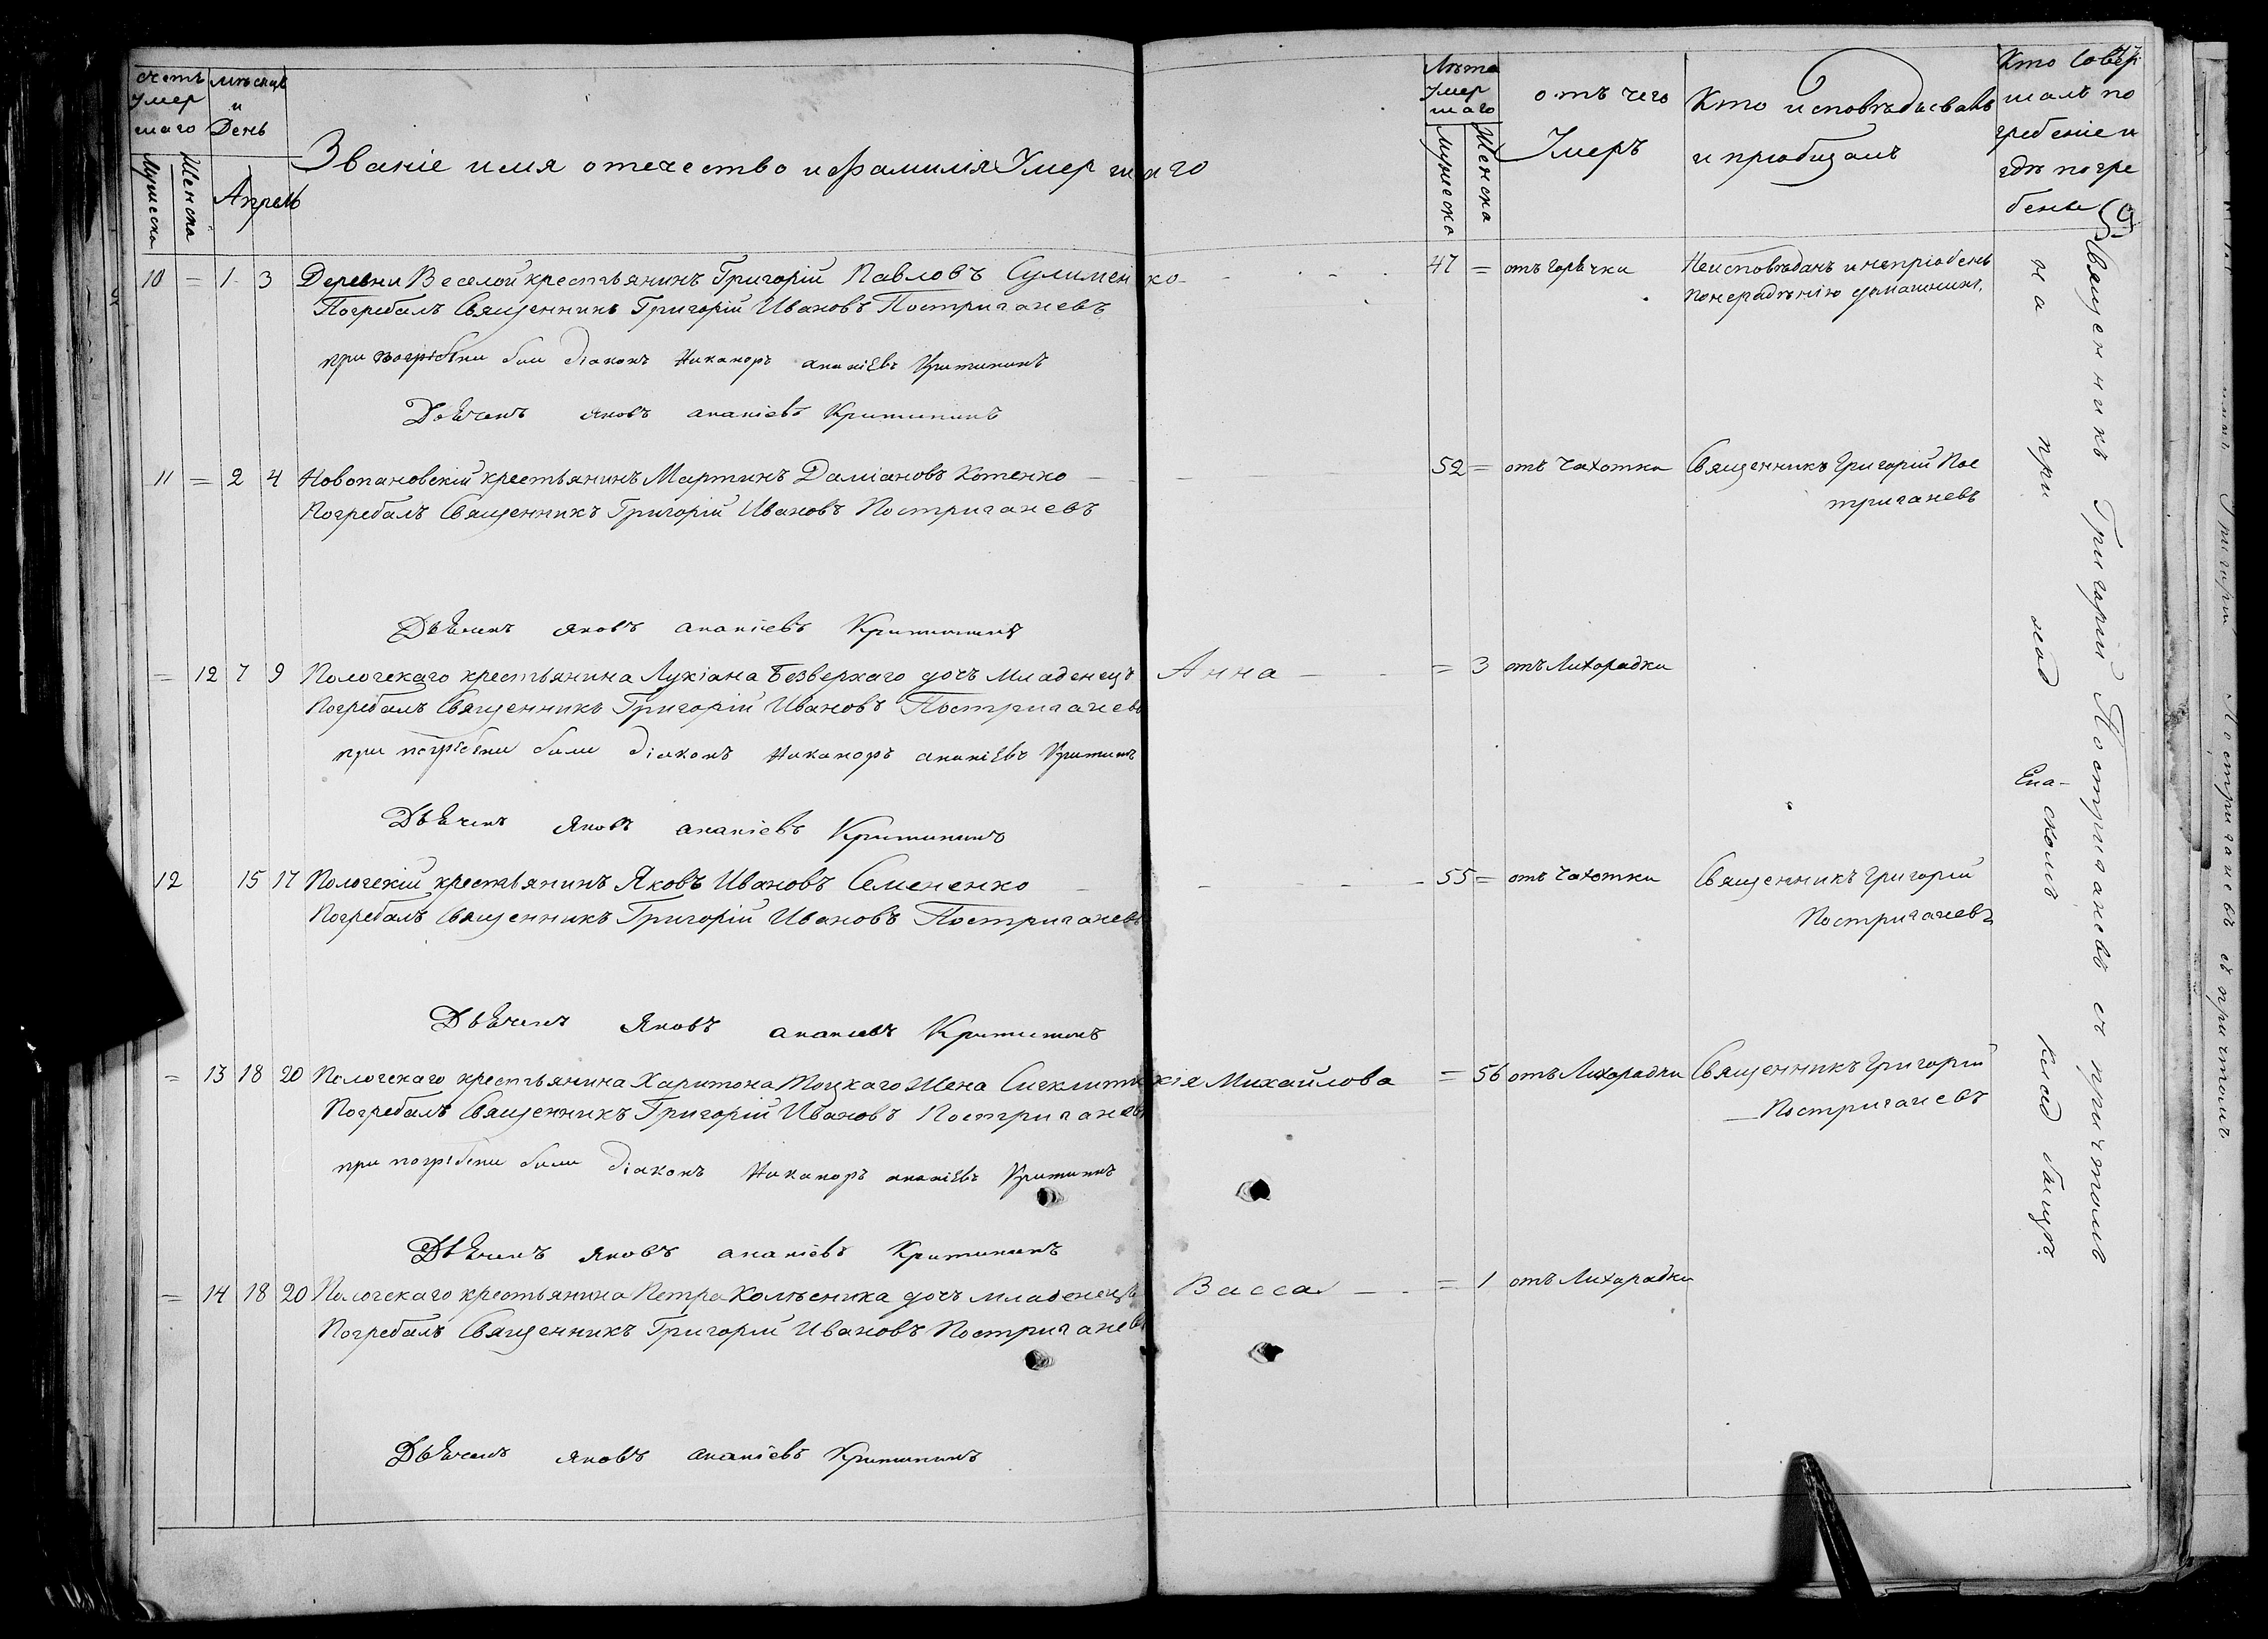 счетъ Умер шаго
мѣсяцъ и День
Званіе имя отечество и фамилія Умершаго
Лѣта Умер шаго
отъ чего Умеръ
Кто исповѣдывалъ и пріобщалъ
Кто совер шалъ по гребеніе и гдѣ погре бены
Мужеска
Женска
Апрель
Мужеска
Женска
10 = 1 3 Деревни Веселой крестьянинъ Григорій Павловъ Сулименко 47 = отъ горячки Неисповѣданъ и непріобщенъ
Погребалъ Священникъ Григорій Ивановъ Постригачевъ по нерадѣнію домашнихъ.
при погребени были діаконъ Никаноръ ананіевъ
Дьячекъ яковъ ананіевъ
11 = 2 4 Новопановскій крестьянинъ Мартинъ Даміановъ Котенко 52 = отъ чахотки Священникъ Григорій Пос
Погребалъ Священникъ Григорій Ивановъ Постригачевъ тригачевъ
Дьячекъ яковъ ананіевъ
= 12 7 9 Пологскаго крестьянина Лукіана Безверхаго дочь младенецъ Анна = 3 отъ Лихорадки
Погребалъ Священникъ Григорій Ивановъ Постригачевъ
при погребени были діаконъ Никаноръ ананіевъ
Дьячекъ яковъ ананіевъ
12 15 17 Пологскій крестьянинъ Яковъ Ивановъ Семененко 55 = отъ чахотки Священникъ Григорій
Погребалъ Священникъ Григорій Ивановъ Постригачевъ Постригачевъ
Дьячекъ Яковъ ананіевъ
= 13 18 20 Пологскаго крестьянина Харитона Тоцкаго Жена Сигклитикія Михайлова = 56 отъ Лихорадки Священникъ Григорій
Погребалъ Священникъ Григорій Ивановъ Постригачевъ Постригачевъ
при погребени были діаконъ Никаноръ ананіевъ
Дьячекъ яковъ ананіевъ
= 14 18 20 Пологскаго крестьянина Петра Колесника дочь младенецъ Васса = 1 отъ Лихорадки
Погребалъ Священникъ Григорій Ивановъ Постригачевъ
Дьячекъ яковъ ананіевъ
Священникъ Григорій Постригачевъ съ причтомъ
на при ход скомъ клад бищѣ